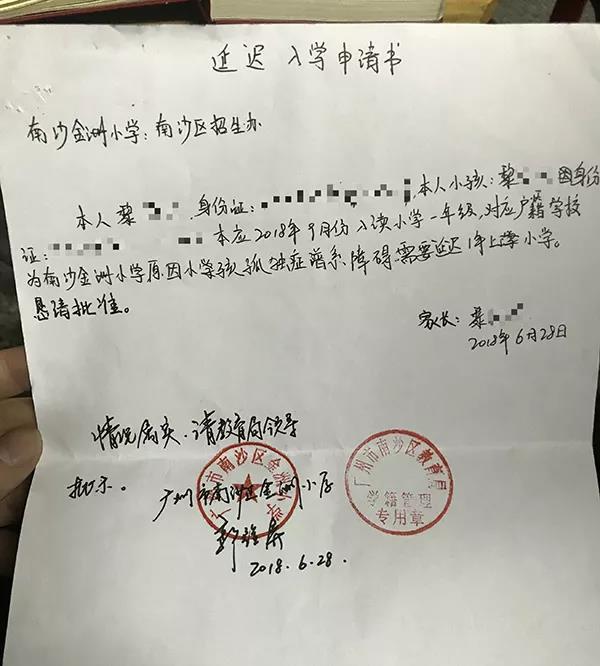 延迟入学申请书
南沙金洲小学:南沙区招生办
本人黎 身份证: ,本人小孩:黎 因身份
证: 本应2018年9月份入读小学一年级,对应户籍学校
为南沙金洲小学原因小孩孤独症谱系障碍需要延迟1年上小学。
恳请批准。
家长:黎
2018年6月28日
情况属实、请教育局领导
批示。
广州市南沙区金洲小学
2018.6.28.
广州市南沙区金洲小学
广州市南沙区教育局
学籍管理
专用章